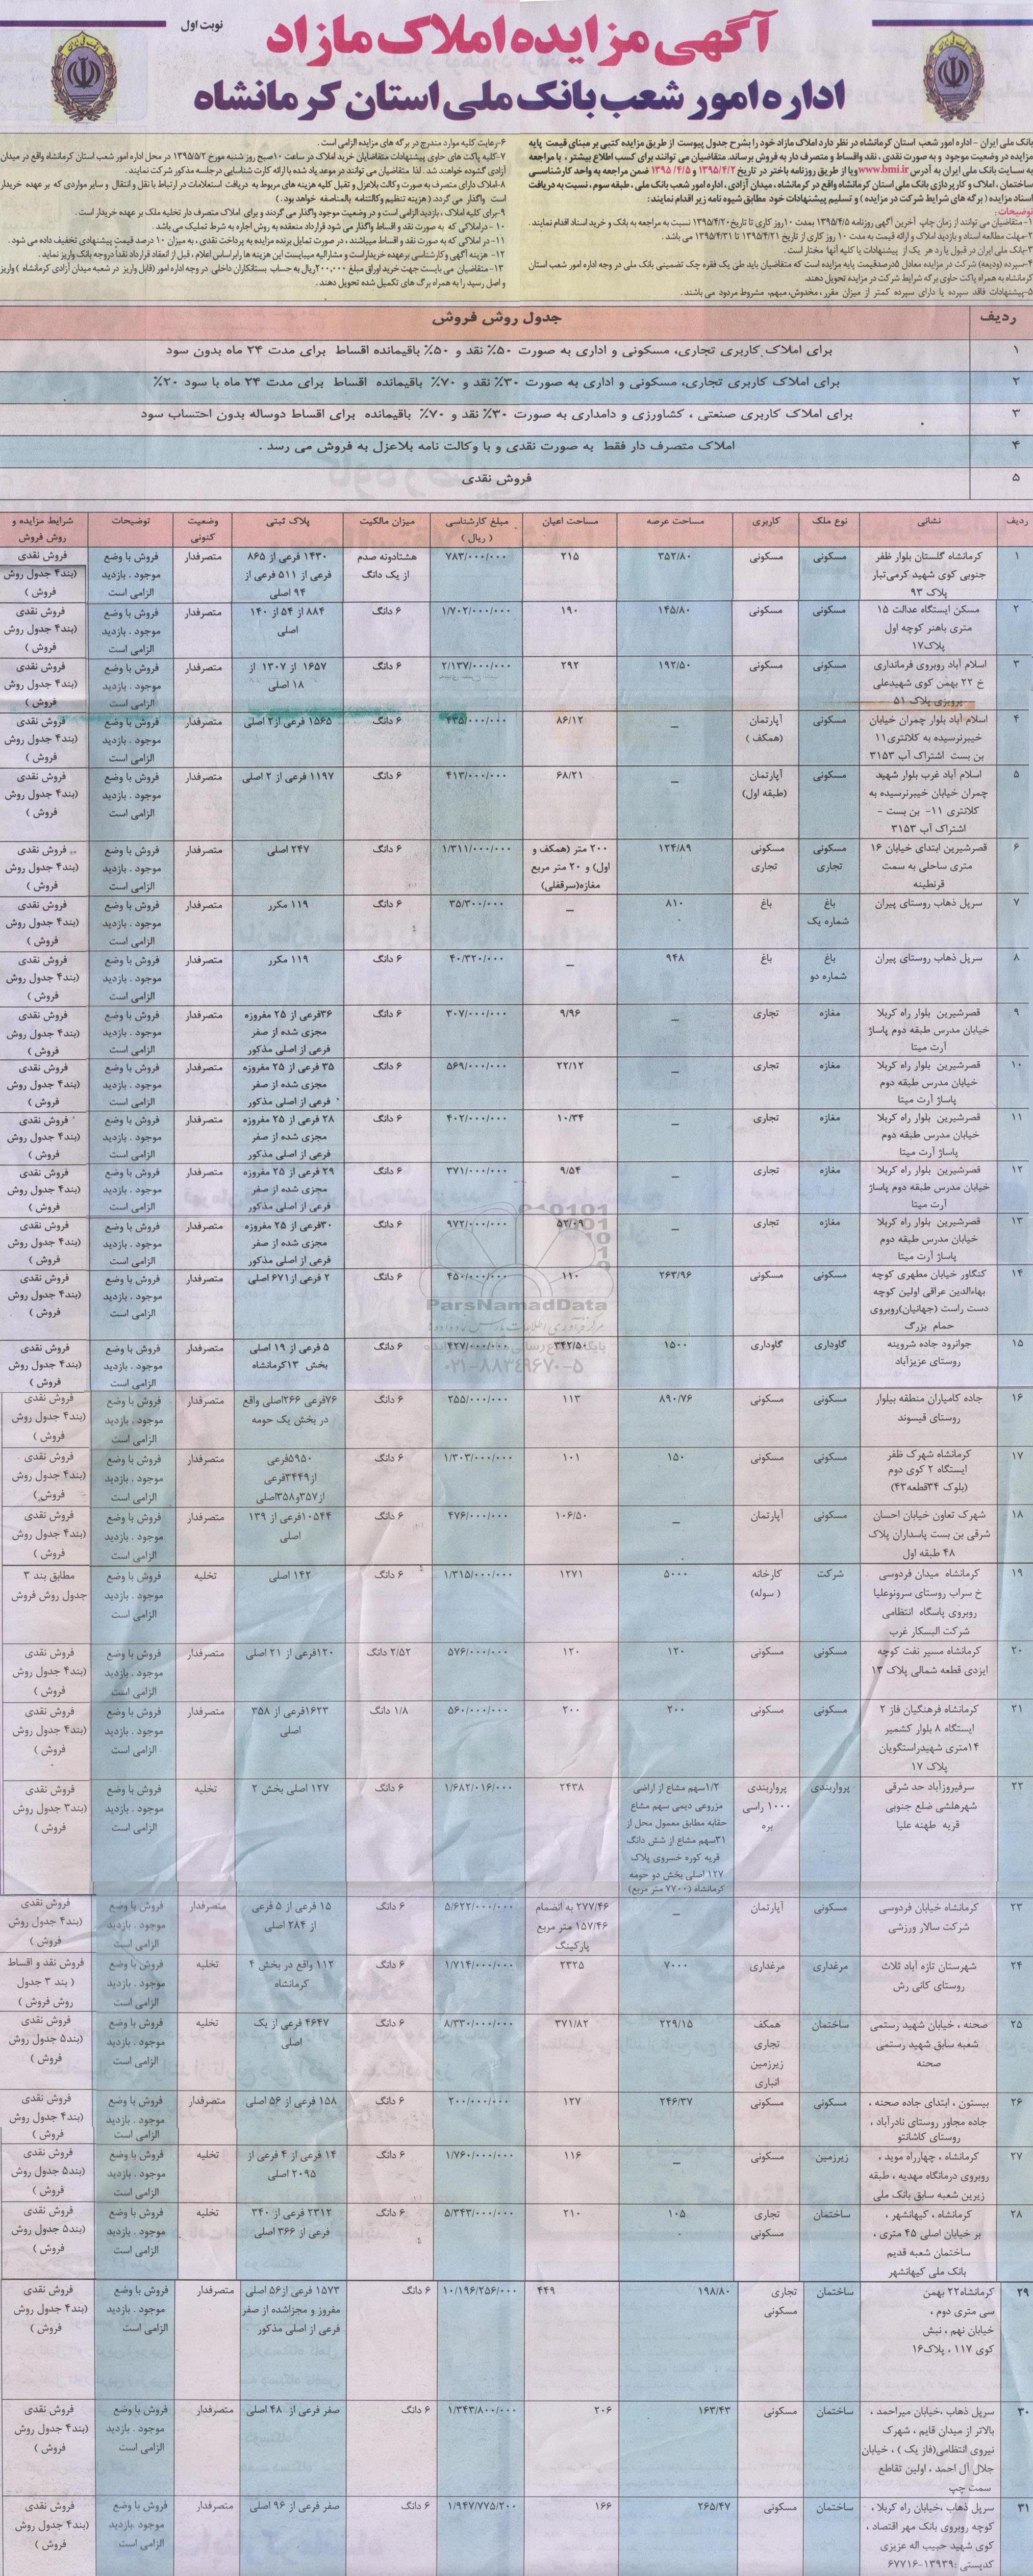 نوبت اول
آگهی مزایده املاک مازاد
اداره امور شعب بانک ملی استان کرمانشاه
بانک ملی ایران - اداره امور شعب استان کرمانشاه در نظر دارد املاک مازاد خود را بشرح جدول پیوست از طریق مزایده کتبی بر مبنای قیمت پایه
مزایده در وضعیت موجود و به صورت نقدی ، نقد واقساط و متصرف دار به فروش برساند. متقاضیان می توانند برای کسب اطلاع بیشتر ، با مراجعه
به سایت بانک ملی ایران به آدرس www.bmi.ir ویا از طریق روزنامه باختر در تاریخ ۱۳۹۵/۴/۲ و ۱۳۹۵/۴/۵ ضمن مراجعه به واحد کارشناسی
ساختمان ، املاک و کارپردازی بانک ملی استان کرمانشاه واقع در کرمانشاه، میدان آزادی ، اداره امور شعب بانک ملی ، طبقه سوم ، نسبت به دریافت
اسناد مزایده ( برگه های شرایط شرکت در مزایده ) و تسلیم پیشنهادات خود مطابق شیوه نامه زیر اقدام نمایند:
توضیحات :
۱-متقاضیان می توانند از زمان چاپ آخرین آگهی روزنامه ۱۳۹۵/۴/۵ بمدت ۱۰روز کاری تا تاریخ ۱۳۹۵/۴/۲۰ نسبت به مراجعه به بانک و خرید اسناد اقدام نمایند.
۲-مهلت مطالعه اسناد و بازدید املاک و ارائه قیمت به مدت ۱۰ روز کاری از تاریخ ۱۳۹۵/۴/۲۱ تا ۱۳۹۵/۴/۳۱ می باشد .
۳-بانک ملی ایران در قبول یا رد هر یک از پیشنهادات یا کلیه آنها مختار است .
۴-سپرده (ودیعه) شرکت در مزایده معادل ۵درصدقیمت پایه مزایده است که متقاضیان باید طی یک فقره چک تضمینی بانک ملی در وجه اداره امور شعب استان
کرمانشاه به همراه پاکت حاوی برگه شرایط شرکت در مزایده تحویل دهند.
۵-پیشنهادات فاقد سپرده یا دارای سپرده کمتر از میزان مقرر ، مخدوش، مبهم، مشروط مردود می باشند .
۶-رعایت کلیه موارد مندرج در برگه های مزایده الزامی است .
۷-کلیه پاکت های حاوی پیشنهادات متقاضیان خرید املاک در ساعت ۱۰صبح روز شنبه مورخ ۱۳۹۵/۵/۲ در محل اداره امور شعب استان کرمانشاه واقع در میدان
آزادی گشوده خواهند شد . لذا متقاضیان می توانند در موعد یاد شده با ارائه کارت شناسایی درجلسه مذکور شرکت نمایند .
۸-املاک دارای متصرف به صورت وکالت بلاعزل و تقبل کلیه هزینه های مربوط به دریافت استعلامات در ارتباط با نقل و انتقال و سایر مواردی که بر عهده خریدار
است واگذار می گردد. ( هزینه تنظیم وکالتنامه بالمناصفه خواهد بود. )
۹-برای کلیه املاک ، بازدید الزامی است و در وضعیت موجود واگذار می گردند و برای املاک متصرف دار تخلیه ملک بر عهده خریدار است .
۱۰ - دراملاکی که به صورت نقد و اقساط واگذار می شود قرارداد منعقده به روش اجاره به شرط تملیک می باشد .
۱۱- در املاکی که به صورت نقد و اقساط میباشند ، در صورت تمایل برنده مزایده به پرداخت نقدی ، به میزان ۱۰ درصد قیمت پیشنهادی تخفیف داده می شود .
۱۲- هزینه آگهی و کارشناسی برعهده خریداراست و مشارالیه میبایست این هزینه ها رابراساس اعلام ، قبل از انعقاد قرارداد نقداً دروجه بانک واریز نماید .
۱۳-متقاضیان می بایست جهت خرید اوراق مبلغ ۲۰۰,۰۰۰ریال به حساب بستانکاران داخلی در وجه اداره امور (قابل واریز در شعبه میدان آزادی کرمانشاه ) واریز
و اصل رسید را به همراه برگ های تکمیل شده تحویل دهند .
ردیف جدول روش فروش
۱ برای املاک کاربری تجاری، مسکونی و اداری به صورت ۵۰٪ نقد و ۵۰٪ باقیمانده اقساط برای مدت ۲۴ ماه بدون سود
۲ برای املاک کاربری تجاری، مسکونی و اداری به صورت ۳۰٪ نقد و ۷۰٪ باقیمانده اقساط برای مدت ۲۴ ماه با سود ۲۰٪
۳ برای املاک کاربری صنعتی ، کشاورزی و دامداری به صورت ۳۰٪ نقد و ۷۰٪ باقیمانده برای اقساط دوساله بدون احتساب سود
۴ املاک متصرف دار فقط به صورت نقدی و با وکالت نامه بلاعزل به فروش می رسد .
۵ فروش نقدی
ردیف نشانی نوع ملک کاربری مساحت عرصه مساحت اعیان مبلغ کارشناسی ( ریال ) میزان مالکیت پلاک ثبتی وضعیت کنونی توضیحات شرایط مزایده و روش فروش
۱ کرمانشاه گلستان بلوار ظفر جنوبی کوی شهید کرمی‌تبار پلاک ۹۳ مسکونی مسکونی ۳۵۲/۸۰ ۲۱۵ ۷۸۳/۰۰۰/۰۰۰ هشتادونه صدم از یک دانگ ۱۴۳۰ فرعی از ۸۶۵ فرعی از ۵۱۱ فرعی از ۹۴ اصلی متصرفدار فروش با وضع موجود . بازدید الزامی است فروش نقدی (بند۴ جدول روش فروش )
۲ مسکن ایستگاه عدالت ۱۵ متری باهنر کوچه اول پلاک۱۷ مسکونی مسکونی ۱۴۵/۸۰ ۱۹۰ ۱/۷۰۲/۰۰۰/۰۰۰ ۶ دانگ ۸۸۴ از ۵۴ از ۱۴۰ اصلی متصرفدار فروش با وضع موجود . بازدید الزامی است فروش نقدی (بند۴ جدول روش فروش )
۳ اسلام آباد روبروی فرمانداری خ ۲۲ بهمن کوی شهیدعلی پرویزی پلاک ۵۱ مسکونی مسکونی ۱۹۲/۵۰ ۲۹۲ ۲/۱۳۷/۰۰۰/۰۰۰ ۶ دانگ ۱۶۵۷ از ۱۳۰۷ از ۱۸ اصلی متصرفدار فروش با وضع موجود . بازدید الزامی است فروش نقدی (بند۴ جدول روش فروش )
۴ اسلام آباد بلوار چمران خیابان خیبرنرسیده به کلانتری۱۱ بن بست اشتراک آب ۳۱۵۳ مسکونی آپارتمان (همکف ) — ۸۶/۱۲ ۴۳۵/۰۰۰/۰۰۰ ۶ دانگ ۱۵۶۵ فرعی از۲ اصلی متصرفدار فروش با وضع موجود . بازدید الزامی است فروش نقدی (بند۴ جدول روش فروش )
۵ اسلام آباد غرب بلوار شهید چمران خیابان خیبرنرسیده به کلانتری ۱۱- بن بست - اشتراک آب ۳۱۵۳ مسکونی آپارتمان (طبقه اول) — ۶۸/۲۱ ۴۱۳/۰۰۰/۰۰۰ ۶ دانگ ۱۱۹۷ فرعی از ۲ اصلی متصرفدار فروش با وضع موجود . بازدید الزامی است فروش نقدی (بند۴ جدول روش فروش )
۶ قصرشیرین ابتدای خیابان ۱۶ متری ساحلی به سمت قرنطینه مسکونی تجاری مسکونی تجاری ۱۲۴/۸۹ ۲۰۰ متر (همکف و اول) و ۲۰ متر مربع مغازه(سرقفلی) ۱/۳۱۱/۰۰۰/۰۰۰ ۶ دانگ ۲۴۷ اصلی متصرفدار فروش با وضع موجود . بازدید الزامی است فروش نقدی (بند۴ جدول روش فروش )
۷ سرپل ذهاب روستای پیران باغ شماره یک باغ ۸۱۰ — ۳۵/۳۰۰/۰۰۰ ۶ دانگ ۱۱۹ مکرر متصرفدار فروش با وضع موجود . بازدید الزامی است فروش نقدی (بند۴ جدول روش فروش )
۸ سرپل ذهاب روستای پیران باغ شماره دو باغ ۹۴۸ — ۴۰/۳۲۰/۰۰۰ ۶ دانگ ۱۱۹ مکرر متصرفدار فروش با وضع موجود . بازدید الزامی است فروش نقدی (بند۴ جدول روش فروش )
۹ قصرشیرین بلوار راه کربلا خیابان مدرس طبقه دوم پاساژ آرت میتا مغازه تجاری — ۹/۹۶ ۳۰۷/۰۰۰/۰۰۰ ۶ دانگ ۳۶فرعی از ۲۵ مفروزه مجزی شده از صفر فرعی از اصلی مذکور متصرفدار فروش با وضع موجود . بازدید الزامی است فروش نقدی (بند۴ جدول روش فروش )
۱۰ قصرشیرین بلوار راه کربلا خیابان مدرس طبقه دوم پاساژ آرت میتا مغازه تجاری — ۲۲/۱۲ ۵۶۹/۰۰۰/۰۰۰ ۶ دانگ ۳۵ فرعی از ۲۵ مفروزه مجزی شده از صفر فرعی از اصلی مذکور متصرفدار فروش با وضع موجود . بازدید الزامی است فروش نقدی (بند۴ جدول روش فروش )
۱۱ قصرشیرین بلوار راه کربلا خیابان مدرس طبقه دوم پاساژ آرت میتا مغازه تجاری — ۱۰/۳۴ ۴۰۲/۰۰۰/۰۰۰ ۶ دانگ ۲۸ فرعی از ۲۵ مفروزه مجزی شده از صفر فرعی از اصلی مذکور متصرفدار فروش با وضع موجود . بازدید الزامی است فروش نقدی (بند۴ جدول روش فروش )
۱۲ قصرشیرین بلوار راه کربلا خیابان مدرس طبقه دوم پاساژ آرت میتا مغازه تجاری — ۹/۵۴ ۳۷۱/۰۰۰/۰۰۰ ۶ دانگ ۲۹ فرعی از ۲۵ مفروزه مجزی شده از صفر فرعی از اصلی مذکور متصرفدار فروش با وضع موجود . بازدید الزامی است فروش نقدی (بند۴ جدول روش فروش )
۱۳ قصرشیرین بلوار راه کربلا خیابان مدرس طبقه دوم پاساژ آرت میتا مغازه تجاری — ۵۲/۰۹ ۹۷۲/۰۰۰/۰۰۰ ۶ دانگ ۳۰فرعی از ۲۵ مفروزه مجزی شده از صفر فرعی از اصلی مذکور متصرفدار فروش با وضع موجود . بازدید الزامی است فروش نقدی (بند۴ جدول روش فروش )
۱۴ کنگاور خیابان مطهری کوچه بهاءالدین عراقی اولین کوچه دست راست (جهانیان)روبروی حمام بزرگ مسکونی مسکونی ۲۶۳/۹۶ ۱۱۰ ۴۵۰/۰۰۰/۰۰۰ ۶ دانگ ۲ فرعی از۶۷۱ اصلی متصرفدار فروش با وضع موجود . بازدید الزامی است فروش نقدی (بند۴ جدول روش فروش )
ParsNamadData
۰۲۱-۸۸۳۴۹۶۷۰-۵
۱۵ جوانرود جاده شروینه روستای عزیزآباد گاوداری گاوداری ۱۵۰۰ ۳۴۲/۵۰ ۴۲۷/۰۰۰/۰۰۰ ۶ دانگ ۵ فرعی از ۱۹ اصلی بخش ۱۳کرمانشاه متصرفدار فروش با وضع موجود . بازدید الزامی است فروش نقدی (بند۴ جدول روش فروش )
۱۶ جاده کامیاران منطقه بیلوار روستای قیسوند مسکونی مسکونی ۸۹۰/۷۶ ۱۱۳ ۲۵۵/۰۰۰/۰۰۰ ۶ دانگ ۷۶فرعی ۲۶۶اصلی واقع در بخش یک حومه متصرفدار فروش با وضع موجود . بازدید الزامی است فروش نقدی (بند۴ جدول روش فروش )
۱۷ کرمانشاه شهرک ظفر ایستگاه ۲ کوی دوم (بلوک ۳۴قطعه۴۳) مسکونی مسکونی ۱۵۰ ۱۰۱ ۱/۳۰۳/۰۰۰/۰۰۰ ۶ دانگ ۵۹۵۰فرعی از۳۴۴۹فرعی از۳۵۷و۳۵۸اصلی متصرفدار فروش با وضع موجود . بازدید الزامی است فروش نقدی (بند۴ جدول روش فروش )
۱۸ شهرک تعاون خیابان احسان شرقی بن بست پاسداران پلاک ۴۸ طبقه اول مسکونی آپارتمان — ۱۰۶/۵۰ ۴۷۶/۰۰۰/۰۰۰ ۶ دانگ ۱۰۵۴۴فرعی از ۱۳۹ اصلی متصرفدار فروش با وضع موجود . بازدید الزامی است فروش نقدی (بند۴ جدول روش فروش )
۱۹ کرمانشاه میدان فردوسی خ سراب روستای سرونوعلیا روبروی پاسگاه انتظامی شرکت البسکار غرب شرکت کارخانه ( سوله) ۵۰۰۰ ۱۲۷۱ ۱/۳۱۵/۰۰۰/۰۰۰ ۶ دانگ ۱۴۲ اصلی تخلیه فروش با وضع موجود . بازدید الزامی است مطابق بند ۳ جدول روش فروش
۲۰ کرمانشاه مسیر نفت کوچه ایزدی قطعه شمالی پلاک ۱۳ مسکونی مسکونی ۱۲۰ ۱۲۰ ۵۷۶/۰۰۰/۰۰۰ ۲/۵۲ دانگ ۱۲۰فرعی از ۲۱ اصلی متصرفدار فروش با وضع موجود . بازدید الزامی است فروش نقدی (بند۴ جدول روش فروش )
۲۱ کرمانشاه فرهنگیان فاز ۲ ایستگاه ۸ بلوار کشمیر ۱۴متری شهیدراستگویان پلاک ۱۷ مسکونی مسکونی ۲۰۰ ۲۰۰ ۵۶۰/۰۰۰/۰۰۰ ۱/۸ دانگ ۱۶۲۳فرعی از ۳۵۸ اصلی متصرفدار فروش با وضع موجود . بازدید الزامی است فروش نقدی (بند۴ جدول روش فروش )
۲۲ سرفیروزآباد حد شرقی شهرهلشی ضلع جنوبی قریه طهنه علیا پرواربندی پرواربندی ۱۰۰۰ راسی بره ۱/۲سهم مشاع از اراضی مزروعی دیمی سهم مشاع حقابه مطابق معمول محل از ۳۱سهم مشاع از شش دانگ قریه کوره خسروی پلاک ۱۲۷ اصلی بخش دو حومه کرمانشاه (۷۷۰۰ متر مربع) ۲۴۳۸ ۱/۶۸۲/۰۱۶/۰۰۰ ۶ دانگ ۱۲۷ اصلی بخش ۲ تخلیه فروش با وضع موجود . بازدید الزامی است فروش نقدی (بند۳ جدول روش فروش )
۲۳ کرمانشاه خیابان فردوسی شرکت سالار ورزشی مسکونی آپارتمان — ۲۷۷/۴۶ به انضمام ۱۵۷/۴۶ متر مربع پارکینگ ۵/۶۲۲/۰۰۰/۰۰۰ ۶ دانگ ۱۵ فرعی از ۵ فرعی از ۲۸۴ اصلی متصرفدار فروش با وضع موجود . بازدید الزامی است فروش نقدی (بند۴ جدول روش فروش )
۲۴ شهرستان تازه آباد ثلاث روستای کانی رش مرغداری مرغداری ۷۰۰۰ ۲۳۲۵ ۱/۷۱۴/۰۰۰/۰۰۰ ۶ دانگ ۱۱۲ واقع در بخش ۴ کرمانشاه تخلیه فروش با وضع موجود . بازدید الزامی است فروش نقد و اقساط ( بند ۳ جدول روش فروش )
۲۵ صحنه ، خیابان شهید رستمی شعبه سابق شهید رستمی صحنه ساختمان همکف تجاری زیرزمین انباری ۲۲۹/۱۵ ۳۷۱/۸۲ ۸/۳۳۰/۰۰۰/۰۰۰ ۶ دانگ ۴۶۴۷ فرعی از یک اصلی تخلیه فروش با وضع موجود . بازدید الزامی است فروش نقدی (بند۵ جدول روش فروش )
۲۶ بیستون ، ابتدای جاده صحنه ، جاده مجاور روستای نادرآباد ، روستای کاشانتو مسکونی مسکونی ۲۴۶/۳۷ ۱۲۷ ۲۰۰/۰۰۰/۰۰۰ ۶ دانگ ۱۵۸ فرعی از ۵۶ اصلی متصرفدار فروش با وضع موجود . بازدید الزامی است فروش نقدی (بند۴ جدول روش فروش )
۲۷ کرمانشاه ، چهارراه موید ، روبروی درمانگاه مهدیه ، طبقه زیرین شعبه سابق بانک ملی زیرزمین مسکونی — ۱۱۶ ۱/۷۶۰/۰۰۰/۰۰۰ ۶ دانگ ۱۴ فرعی از ۴ فرعی از ۲۰۹۵ اصلی تخلیه فروش با وضع موجود . بازدید الزامی است فروش نقدی (بند۵ جدول روش فروش )
۲۸ کرمانشاه ، کیهانشهر ، بر خیابان اصلی ۴۵ متری ، ساختمان شعبه قدیم بانک ملی کیهانشهر ساختمان تجاری مسکونی ۱۰۵ ۲۱۰ ۵/۳۴۳/۰۰۰/۰۰۰ ۶ دانگ ۲۳۱۲ فرعی از ۳۴۰ فرعی از ۳۶۶ اصلی تخلیه فروش با وضع موجود . بازدید الزامی است فروش نقدی (بند۵ جدول روش فروش )
۲۹ کرمانشاه۲۲ بهمن سی متری دوم ، خیابان نهم ، نبش کوی ۱۱۷ ، پلاک۱۶ ساختمان تجاری مسکونی ۱۹۸/۸۰ ۴۴۹ ۱۰/۱۹۶/۲۵۶/۰۰۰ ۶ دانگ ۱۵۷۳ فرعی از۵۶ اصلی مفروز و مجزاشده از صفر فرعی از اصلی مذکور متصرفدار فروش با وضع موجود . بازدید الزامی است فروش نقدی (بند۴ جدول روش فروش )
۳۰ سرپل ذهاب ،خیابان میراحمد ، بالاتر از میدان قایم ، شهرک نیروی انتظامی(فاز یک ) ، خیابان جلال آل احمد ، اولین تقاطع سمت چپ ساختمان مسکونی ۱۶۳/۴۳ ۲۰۶ ۱/۳۴۳/۸۰۰/۰۰۰ ۶ دانگ صفر فرعی از ۴۸ اصلی متصرفدار فروش با وضع موجود . بازدید الزامی است فروش نقدی (بند۴ جدول روش فروش )
۳۱ سرپل ذهاب ،خیابان راه کربلا ، کوچه روبروی بانک مهر اقتصاد ، کوی شهید حبیب اله عزیزی کدپستی :۱۳۹۳۹-۶۷۷۱۶ ساختمان مسکونی ۲۶۵/۴۷ ۱۶۶ ۱/۹۴۷/۷۷۵/۲۰۰ ۶ دانگ صفر فرعی از ۹۶ اصلی متصرفدار فروش با وضع موجود . بازدید الزامی است فروش نقدی (بند۴ جدول روش فروش )